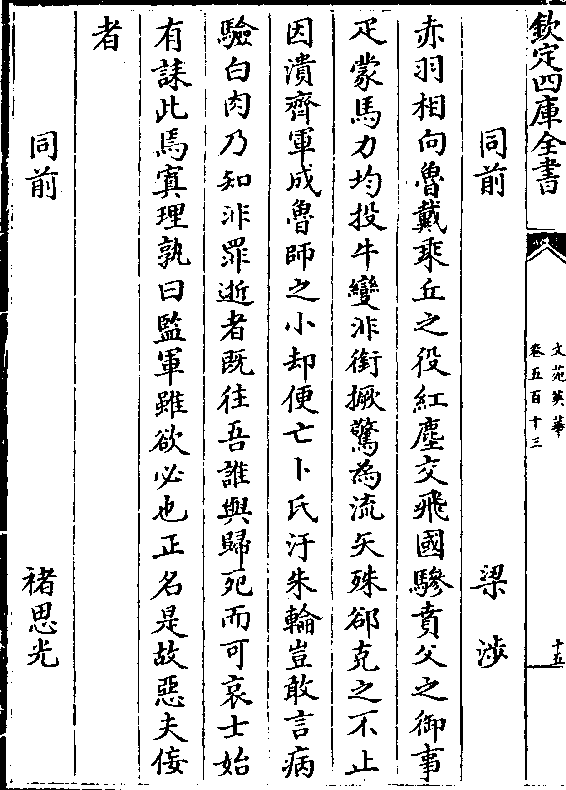 欽定四庫全書
文苑英華
卷五百十三
十五
同前 梁涉
赤羽相向魯戴乘丘之役紅塵交飛國驂賁父之御事
疋蒙馬力均投牛變非銜撅驚為流矢殊郤克之不止
因潰齊軍成魯師之小却便亡卜氏汙朱輪豈敢言病
驗白肉乃知非罪逝者既往吾誰與歸死而可哀士始
有誄此焉寘理孰曰監軍雖欲必也正名是故惡夫佞
者
同前 褚思光